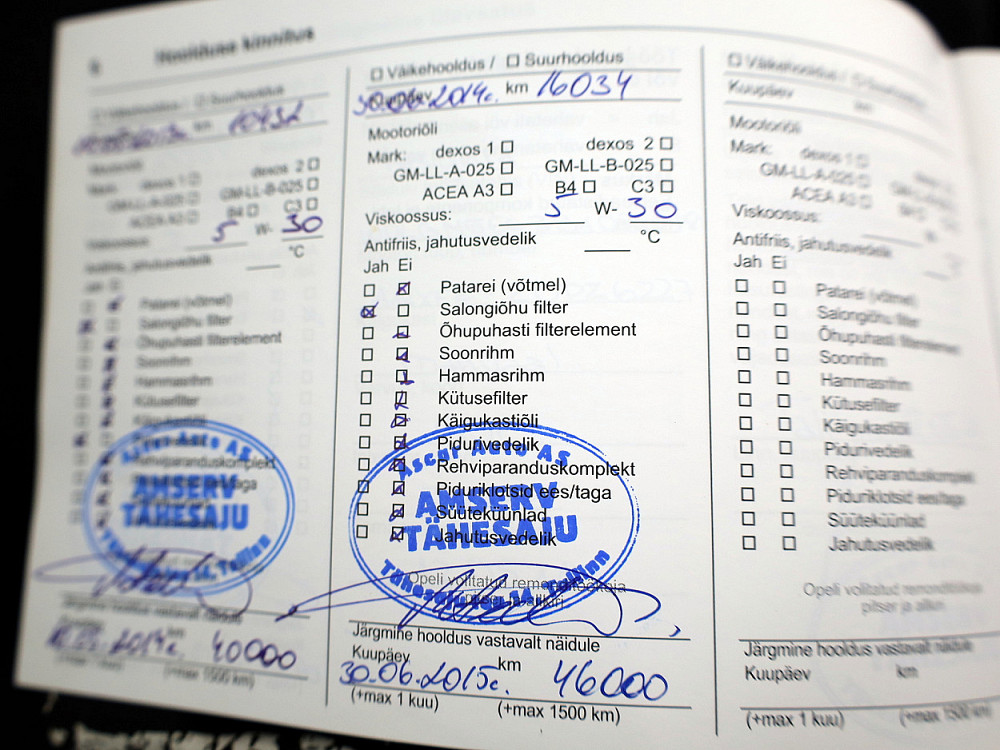 Hoolduse kinnitus
Väikehooldus / Suurhooldus
km 10432
dexos 2
GM-LL-B-025
ACEA A3 B4 C3
Viskoossus: 5 W- 30
Antifriis, jahutusvedelik °C
Patarei (võtmel)
Salongiõhu filter
Õhupuhasti filterelement
Soonrihm
Hammasrihm
Kütusefilter
Käigukastiõli
Rehviparanduskomplekt
Ascar Auto AS
AMSERV
TÄHESAJU
Tallinn
Järgmine hooldus vastavalt näidule
2014. km 40000
(+max 1500 km)
Väikehooldus / Suurhooldus
Kuupäev 30.06.2014. km 16034
Mootoriõli
Mark: dexos 1 dexos 2
GM-LL-A-025 GM-LL-B-025
ACEA A3 B4 C3
Viskoossus: 5 W- 30
Antifriis, jahutusvedelik °C
Jah Ei
Patarei (võtmel)
Salongiõhu filter
Õhupuhasti filterelement
Soonrihm
Hammasrihm
Kütusefilter
Käigukastiõli
Pidurivedelik
Rehviparanduskomplekt
Piduriklotsid ees/taga
Süüteküünlad
Jahutusvedelik
Ascar Auto AS
AMSERV
TÄHESAJU
Tallinn
Opeli volitatud remonditöökoja
Järgmine hooldus vastavalt näidule
Kuupäev km
30.06.2015. 46000
(+max 1 kuu) (+max 1500 km)
Väikehooldus / Suurhooldus
Kuupäev km
Mootoriõli
Mark: dexos 1
GM-LL-A-025
ACEA A3
Viskoossus:
Antifriis, jahutusvedelik
Jah Ei
Patarei (võtmel)
Salongiõhu filter
Õhupuhasti filterelement
Soonrihm
Hammasrihm
Kütusefilter
Käigukastiõli
Pidurivedelik
Rehviparanduskomplekt
Piduriklotsid ees/taga
Süüteküünlad
Jahutusvedelik
Opeli volitatud
Järgmine hooldus vastavalt näidule
Kuupäev km
(+max 1 kuu) (+max 1500 km)